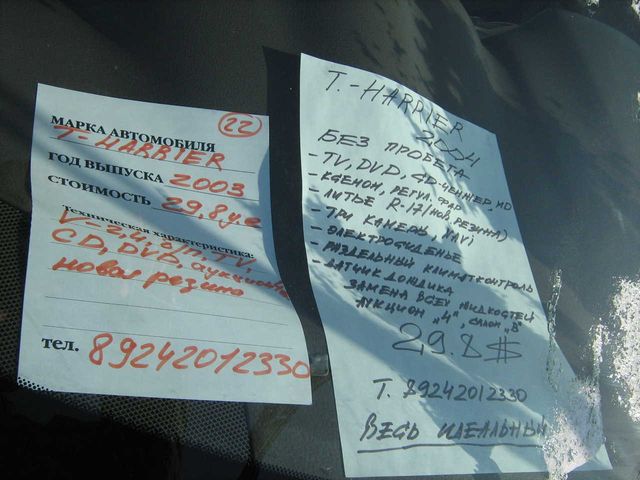 22
МАРКА АВТОМОБИЛЯ
T-HARRIER
ГОД ВЫПУСКА 2003
СТОИМОСТЬ 29,8 у.е
Техническая характеристика:
V-2.4, б/п, TV,
CD, DVD, аукцион
новая резина
тел. 89242012330
T.-HARRIER
2004
БЕЗ ПРОБЕГА
- TV, DVD, CD-ЧЕННЖЕР, MD
- КСЕНОН, РЕГУЛ. ФАР
- ЛИТЬЕ R-17 (НОВ. РЕЗИНА)
- ТРИ КАМЕРЫ, (NAVI)
- ЭЛЕКТРОСИДЕНЬЕ
- РАЗДЕЛЬНЫЙ КЛИМАТКОНТРОЛЬ
- ДАТЧИК ДОЖДИКА
ЗАМЕНА ВСЕХ ЖИДКОСТЕЙ
АУКЦИОН "4", САЛОН "В"
29.8 $
Т. 89242012330
ВЕСЬ ИДЕАЛЬНЫЙ